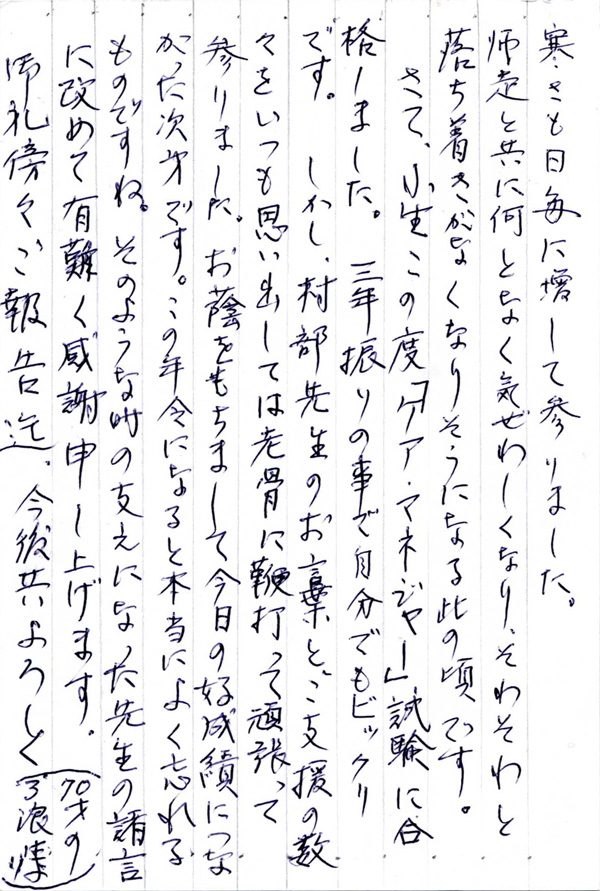 寒さも日毎に増して参りました。
師走と共に何となく気ぜわしくなり、そわそわと
落ち着きがなくなりそうになる此の頃です。
さて、小生この度「ケア・マネジャー」試験に合
格しました。 三年振りの事で自分でもビックリ
です。 しかし、村部先生のお言葉とご支援の数
々をいつも思い出しては老骨に鞭打って頑張って
参りました。お蔭をもちまして今日の好成績につな
がった次第です。この年令になると本当によく忘れる
ものですね。そのような時の支えになった先生の諸言
に改めて有難く感謝申し上げます。
御礼傍々ご報告迄、今後共よろしく
70才の
3浪生